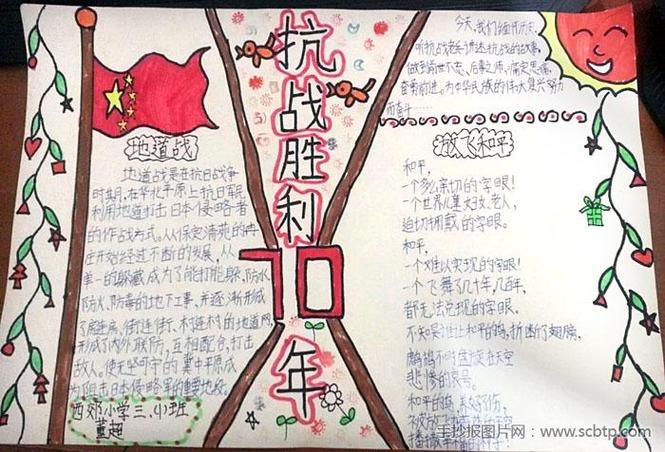 抗战胜利
70
年
地道战
地道战是在抗日战争
时期,在华北平原上抗日军民
利用地道打击日本侵略者
的作战方式。从保定清苑的冉
庄开始经过不断的发展,从
单一的躲藏成为了能打能躲、防水、
防火、防毒的地下工事,并逐渐形成
了房连房、街连街、村连村的地道网,
形成了内外联防,互相配合,打击
敌人,使无坚可守的冀中平原成
为阻击日本侵略军的重要地段。
西郊小学三、(1)班
董超
今天,我们缅怀历史,
听抗战老兵讲述抗战的故事,
做到前世不忘,后事之师,痛定思痛,
奋勇前进。为中华民族的伟大复兴努力
而奋斗……
放飞和平
和平,
一个多么亲切的字眼!
一个世界儿童、妇女、老人,
迫切拥戴的字眼。
和平,
一个难以实现的字眼!
一个飞舞了几十年,几百年,
都无法兑现的字眼。
不知是谁让和平的鸽,折断了翅膀,
鹧鸪不时盘旋在天空
悲惨的哀号。
和平的鸽,养好伤,
手抄报图片网:www.scbtp.com